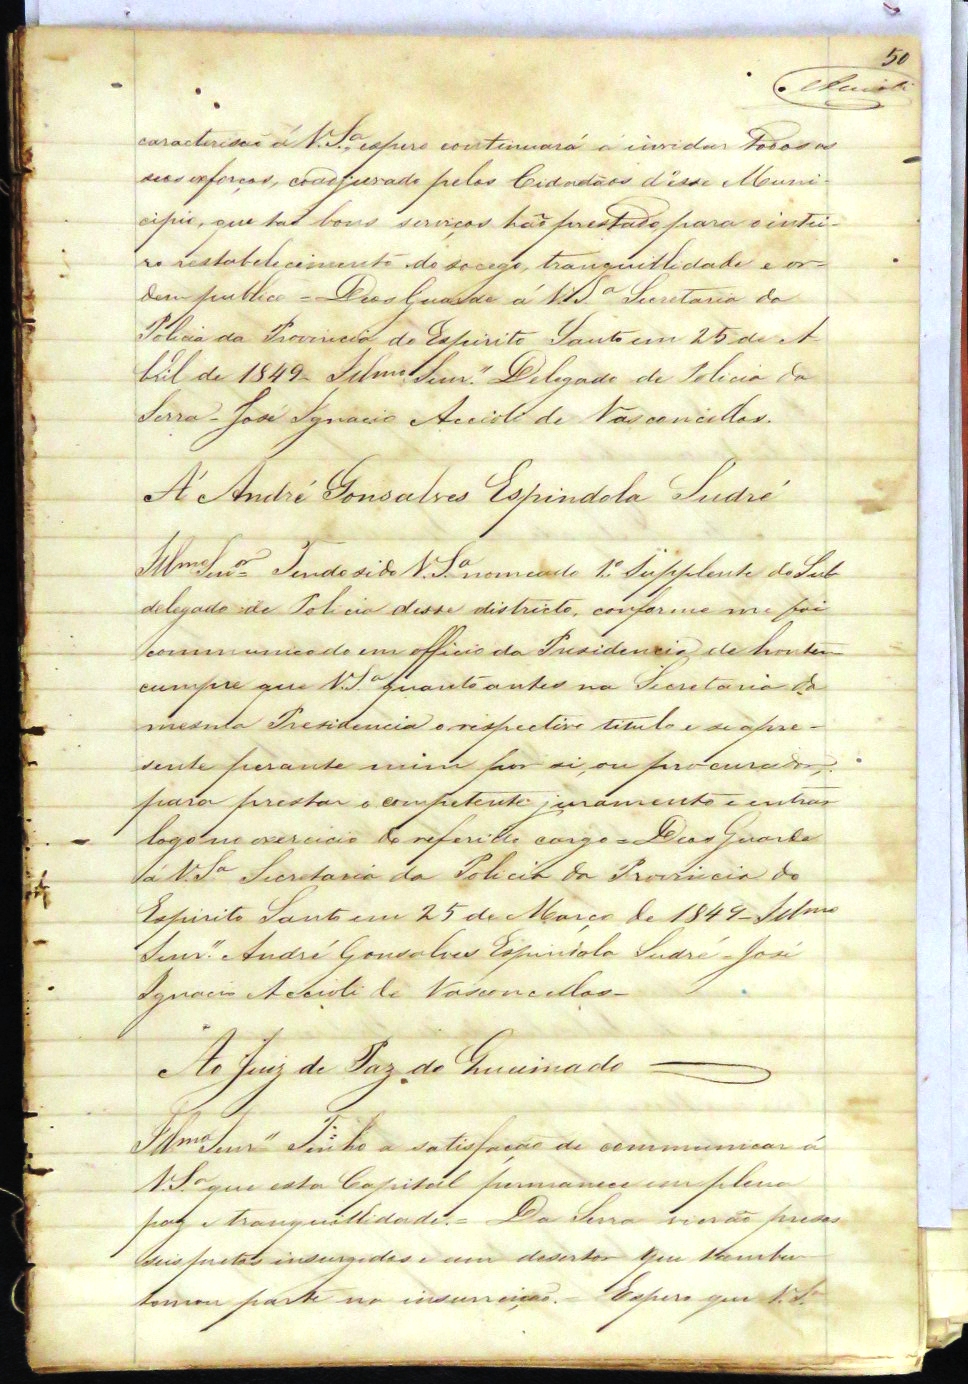 50
Accioli
caracterisão á V. S.ª, espero continuará á invidar todos os
seos exforços, coadjuvado pelos Cidadãos d'esse Muni-
cipio, que tão bons serviços hão prestado para o intei-
ro restabelecimento do socego, tranquillidade e or-
dem publica = Deos Guarde á V. S.ª Secretaria da
Policia da Provincia do Espirito Santo em 25 de A
bril de 1849 - Illmo. Senr.'' Delegado de Policia da
Serra - José Ignacio Accioli de Vasconcellos.
A' André Gonsalves Espindola Sudré
Illmo Senor = Tendo sido V. S.ª nomeado 1.º Supplente do Sub
delegado de Policia desse districto, conforme me foi
communicado em officio da Presidencia de hontem
cumpre que V. S.ª quanto antes na Secretaria da
mesma Presidencia o respectivo titulo e se apre-
sente perante mim por si, ou procurador,
para prestar o competente juramento e entrar
logo no exercicio do referido cargo = Deos Guarde
á V. S.ª Secretaria da Policia da Provincia do
Espirito Santo em 25 de Março de 1849 - Illmo
Senr.'' André Gonsalves Espindola Sudré - José
Ignacio Accioli de Vasconcellos -
Ao Juiz de Paz do Queimado
Illmo Senr'' Tenho a satisfação de communicar á
V. S.ª que esta Capital permanece em plena
paz e tranquillidade. = Da Serra vierão presos
seis pretos insurgidos e um desertor que tambem
tomou parte na insurreição. = Espero que V. S.ª